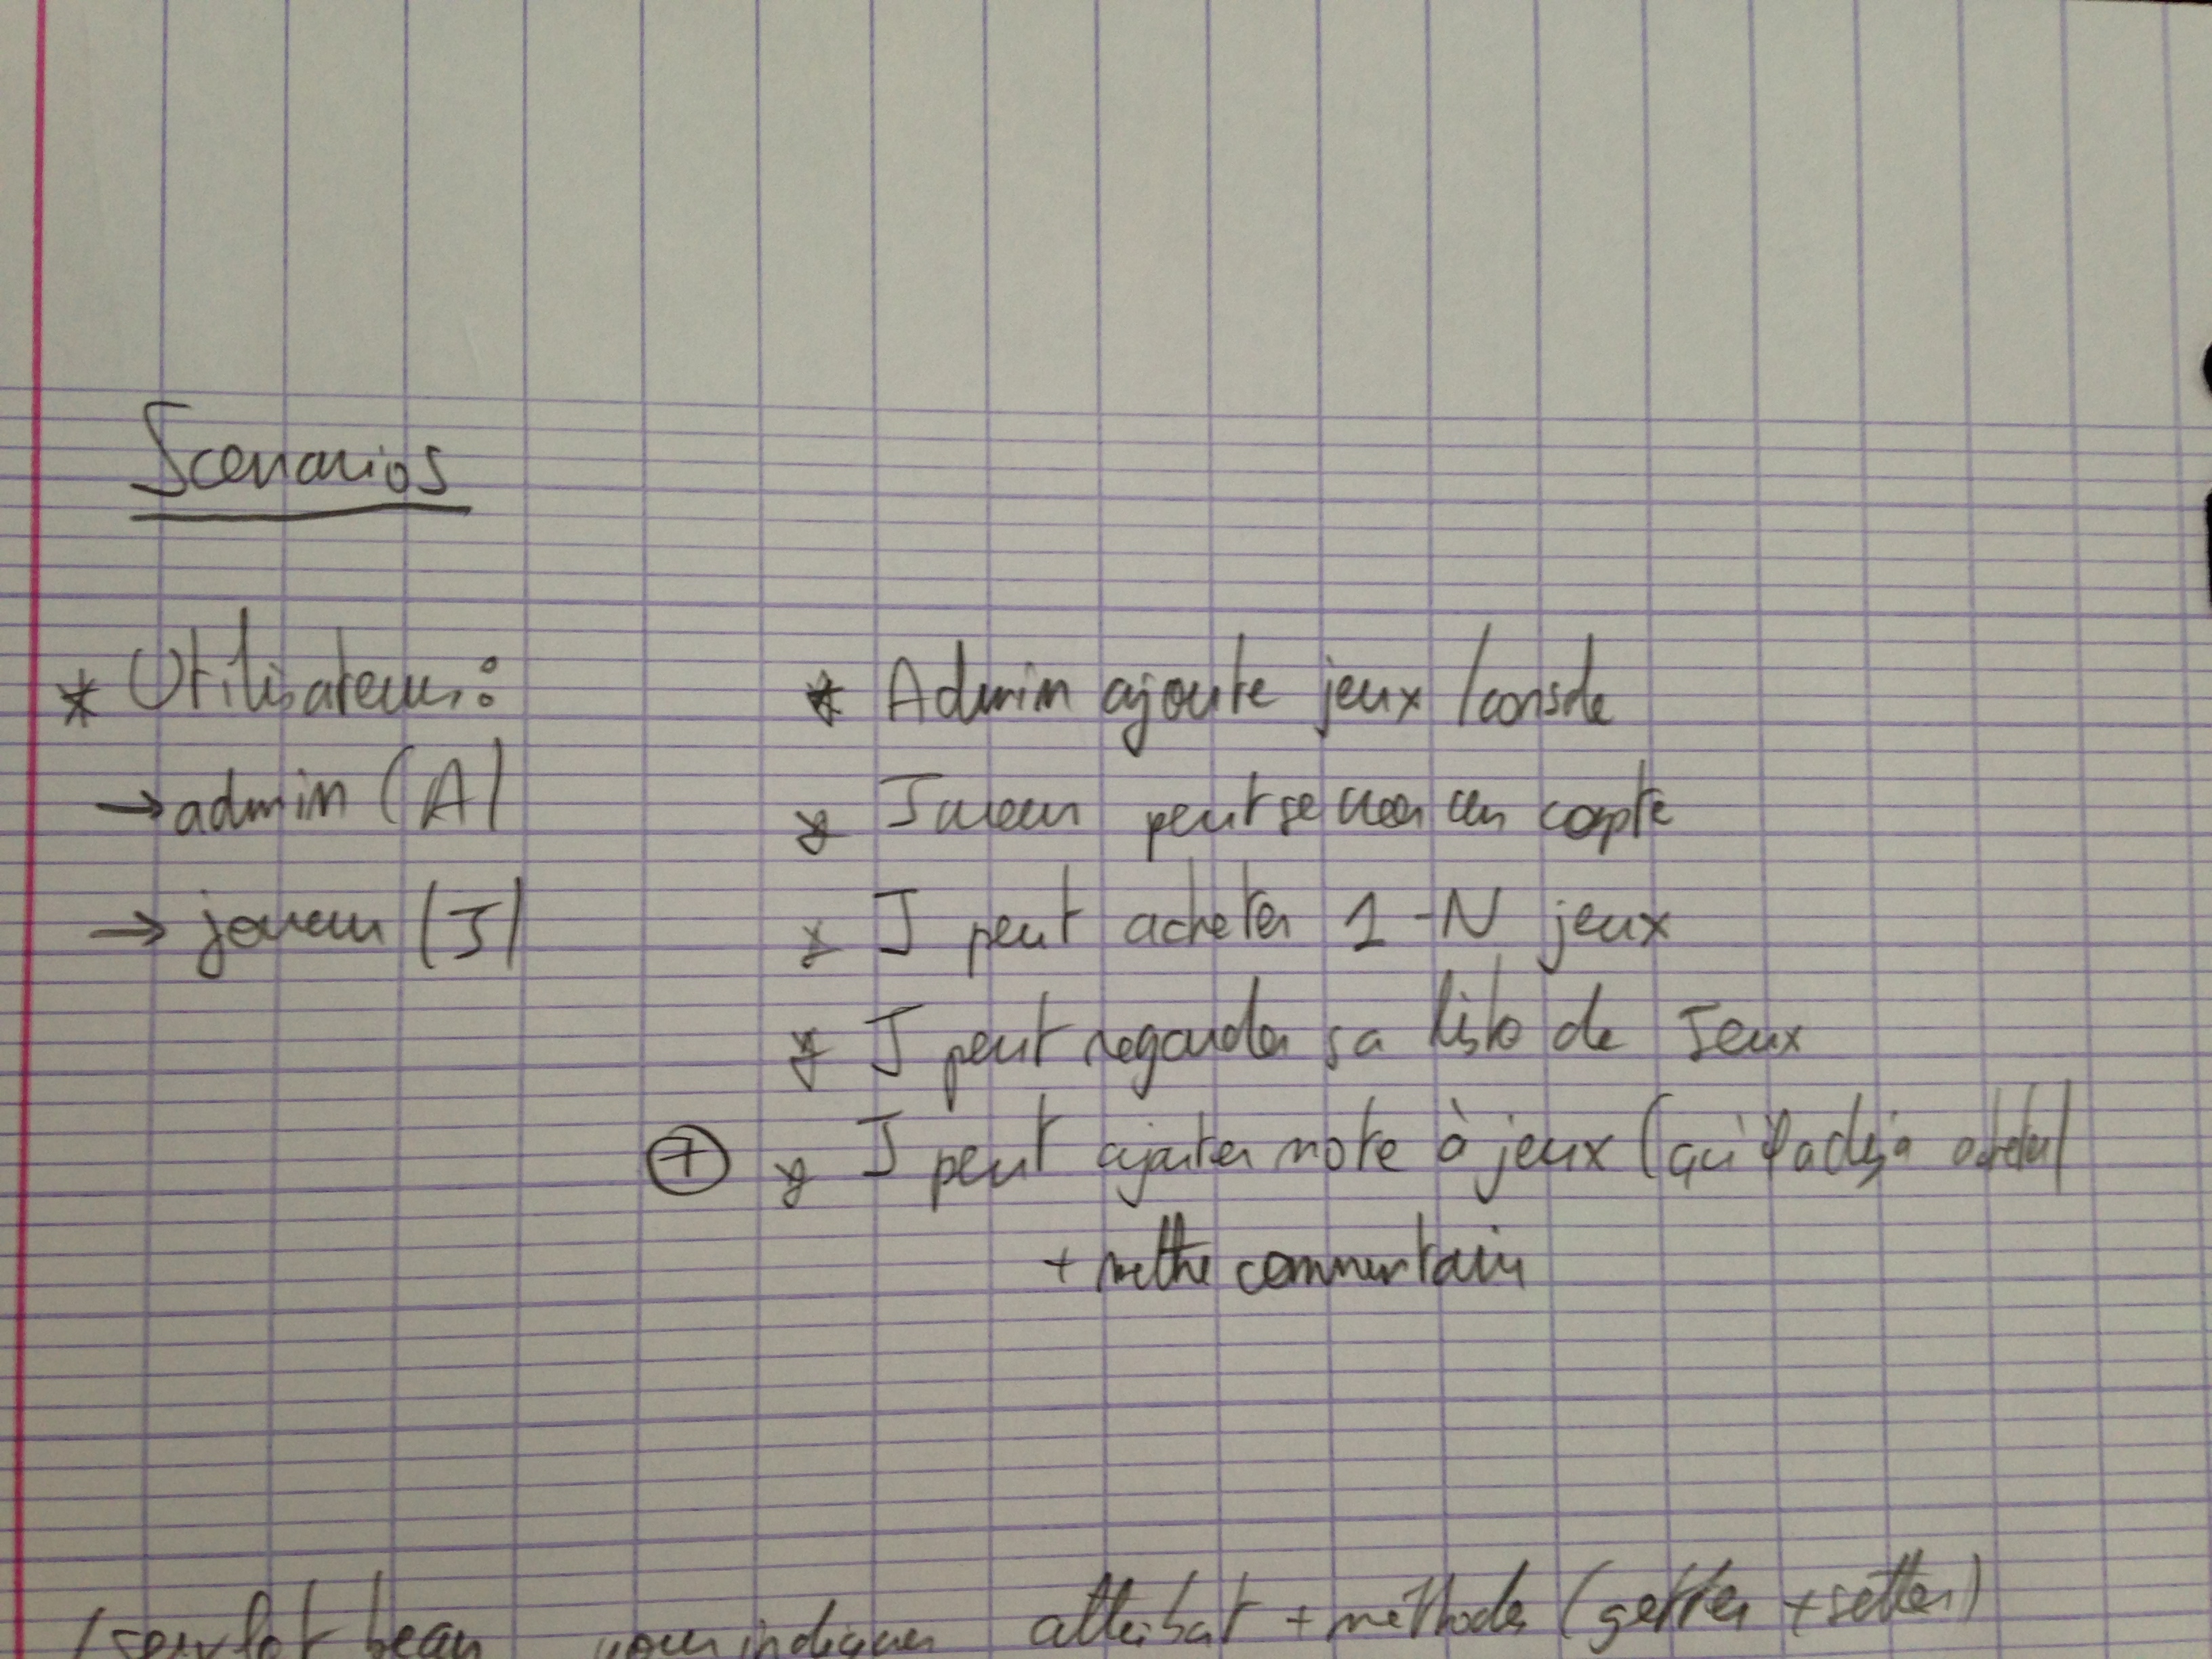 Scenarios
* Utilisateurs :
→ admin (A)
→ joueur (J)
* Admin ajoute jeux / console
* Joueur peut se créer un compte
* J peut acheter 1-N jeux
* J peut regarder sa liste de Jeux
+ * J peut ajouter note à jeux (qu'il a déjà acheté)
+ mettre commentaire
servlet bean pour indiquer attribut + méthode (getter + setter)